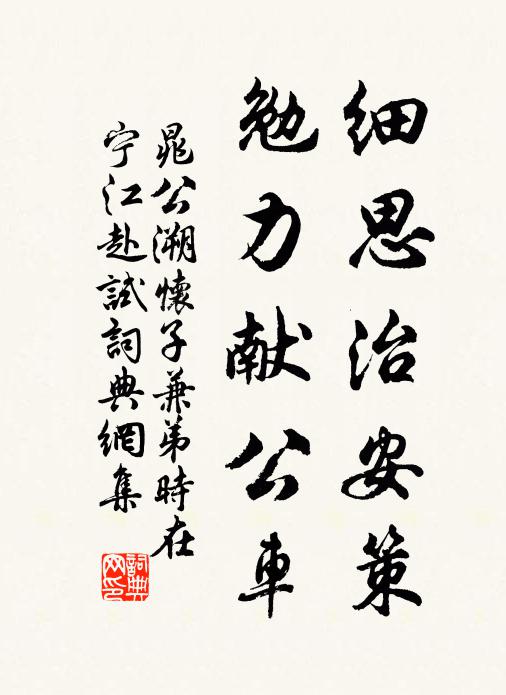 细思治安策
勉力献公車
晁公溯懷子兼弟時在
宁江赴試詞典網集
詞典
网印